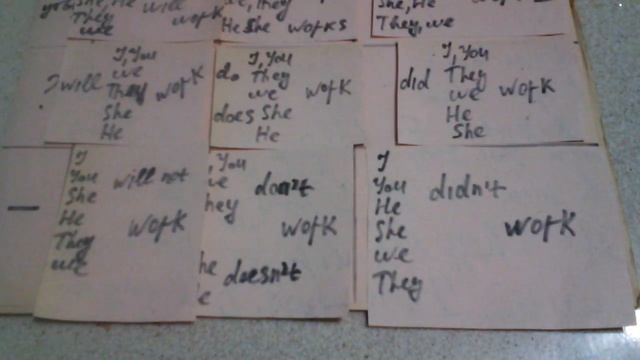 She, He will work
They
we
They
He She works
She, He
They, we
? will I, You work
we
They
She
He
do I, You work
They
we
does She
He
did I, You work
They
we
He
She
I
You will not
She
He work
They
we
, You
we don't
They
work
he doesn't
I
You didn't
He
She work
we
They